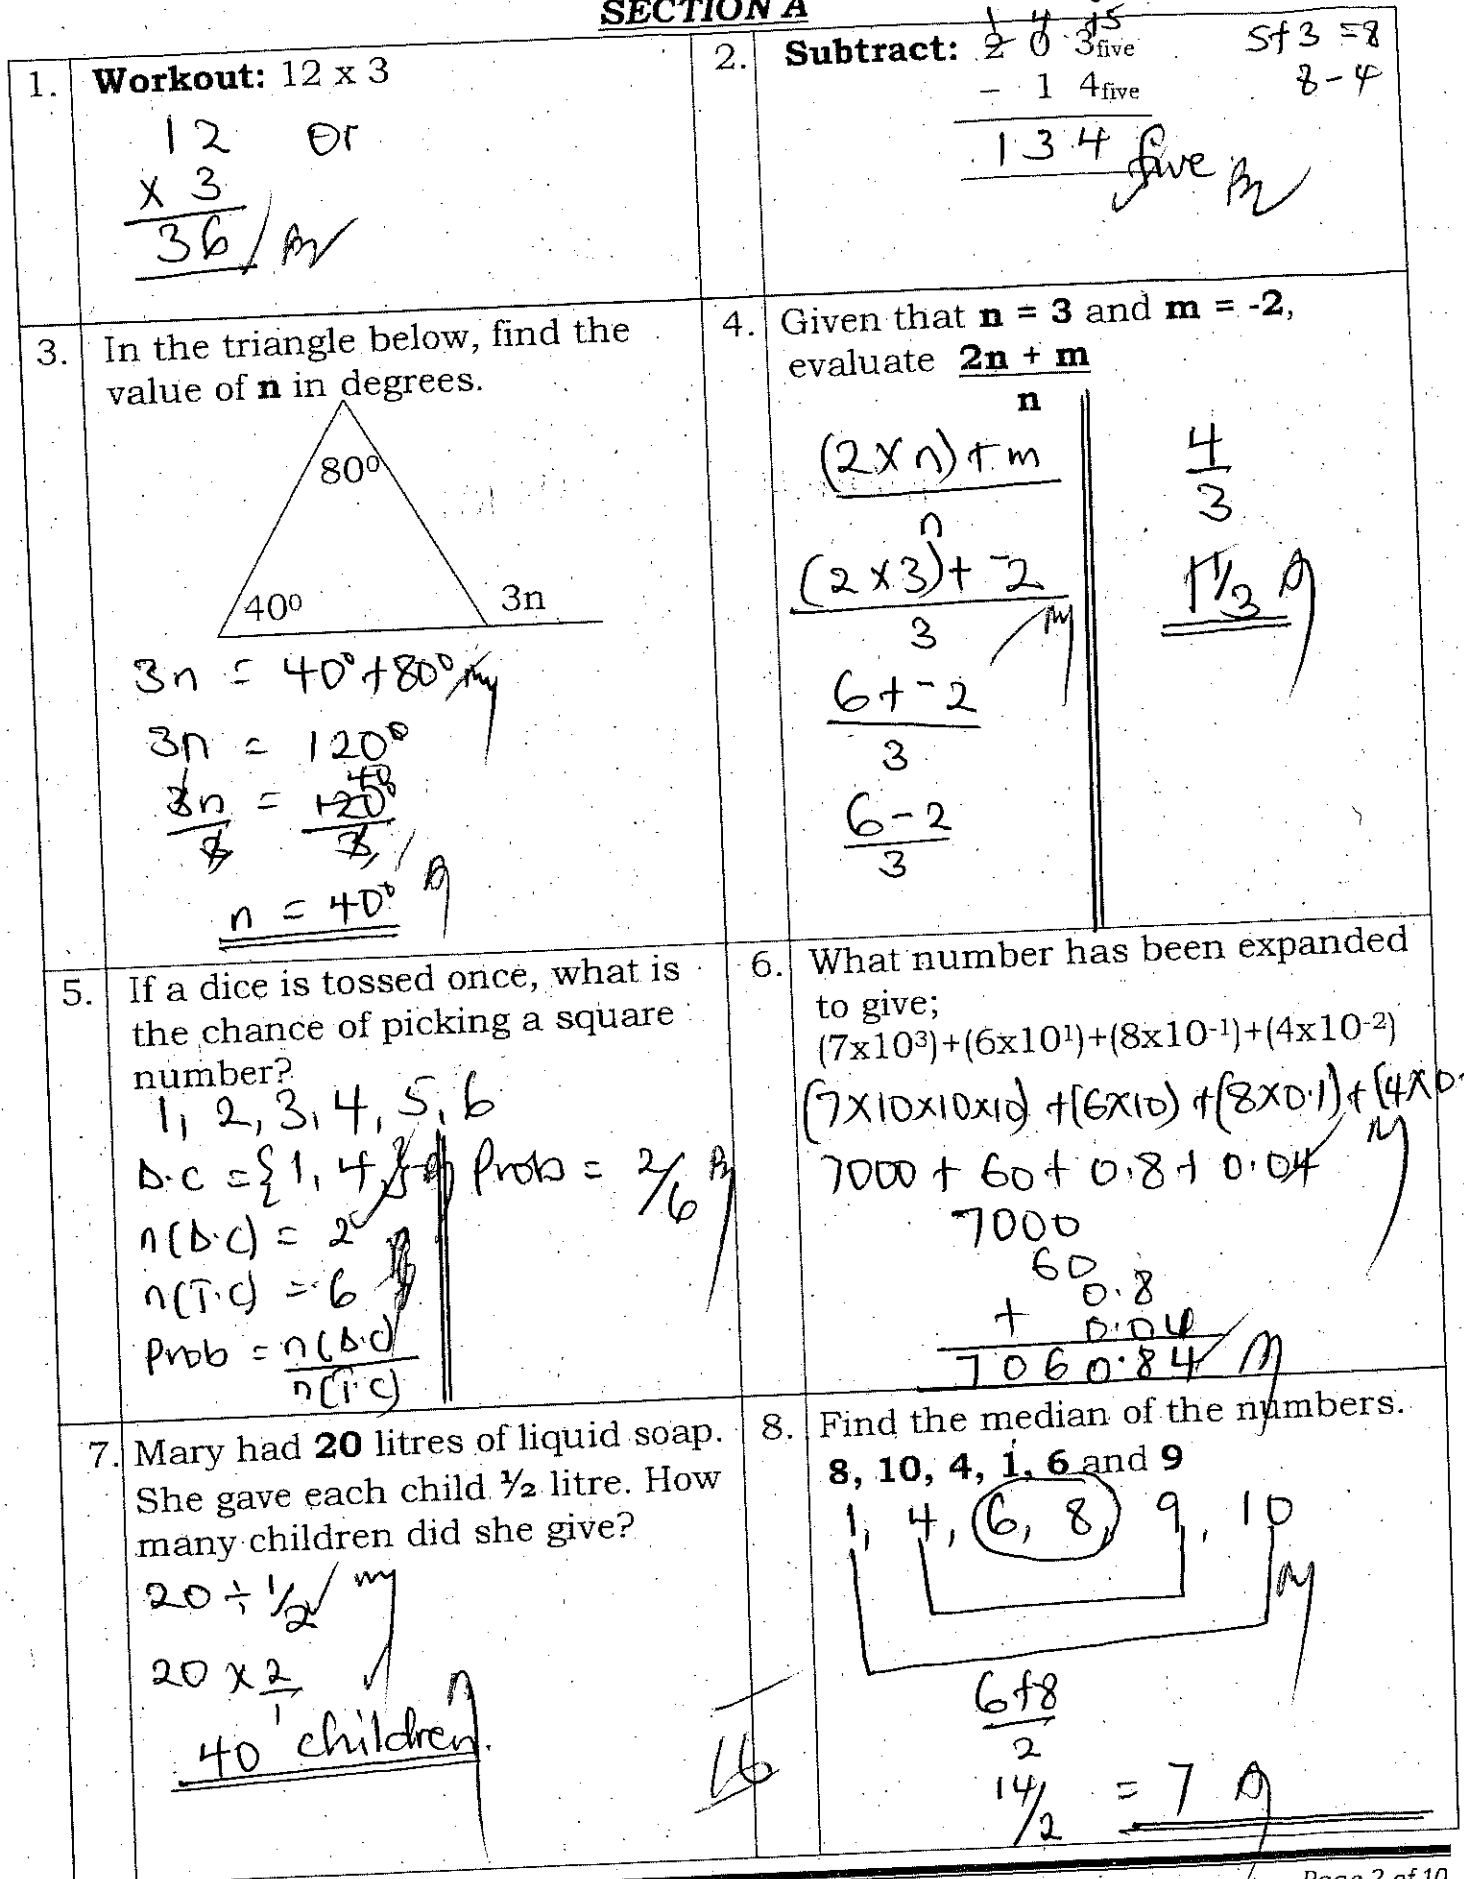 SECTION A
1. Workout: 12 x 3
12 or
x 3
36
2. Subtract: 2 0 3five
- 1 4five
1 4 +5
5+3 =8
8-4
134 five
3. In the triangle below, find the
value of n in degrees.
80⁰
40⁰ 3n
3n = 40°+80°
3n = 120°
3n/3 = 120°/3
40
n = 40°
4. Given that n = 3 and m = -2,
evaluate 2n + m
n
(2×n)+m
n
(2×3)+ ⁻2
3
6+⁻2
3
6-2
3
4
3
1⅓
5. If a dice is tossed once, what is
the chance of picking a square
number?
1, 2, 3, 4, 5, 6
D.C ={1, 4,}
n(D.C) = 2
n(T.C) = 6
Prob = n(D.C)
n(T.C)
Prob = 2/6
6. What number has been expanded
to give;
(7x10³)+(6x10¹)+(8x10⁻¹)+(4x10⁻²)
(7×10×10×10) +(6×10) +(8×0.1)+(4×0.
7000 + 60 + 0.8 + 0.04
7000
60
0.8
+ 0.04
7060.84
7. Mary had 20 litres of liquid soap.
She gave each child ½ litre. How
many children did she give?
20 ÷ 1/2
20 × 2/1
40 children.
16
8. Find the median of the numbers.
8, 10, 4, 1, 6 and 9
1, 4, 6, 8, 9, 10
6+8
2
14/2 = 7
Page 2 of 10